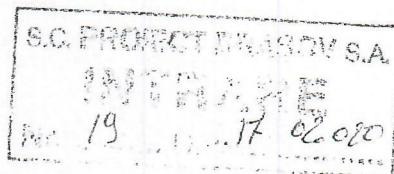 S.C. PROIECT BRASOV S.A.
INTRARE
Nr. 19 ........ 17 02.020